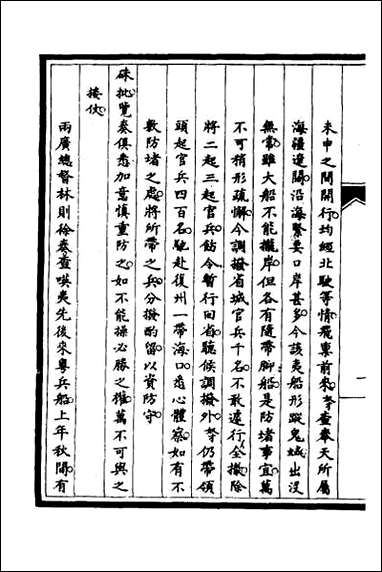 未申之間開行均經北駛等情飛稟前來奴才查奉天所屬
海疆遼闊沿海緊要口岸甚多今該夷船形蹤鬼蜮出沒
無常雖大船不能攏岸但各有隨帶腳船是防堵事宜萬
不可稍形疏懈今調撥省城官兵千名不敢遽行全撤除
將二起三起官兵飭令暫行回省聽候調撥外奴才仍帶領
頭起官兵四百名馳赴復州一帶海口悉心體察如有不
敷防堵之處將所帶之兵分撥酌留以資防守
硃批覽奏俱悉加意慎重防之如不能操必勝之權萬不可與之
接仗
兩廣總督林則徐奏查嘆夷先後來粵兵船上年秋間有
一